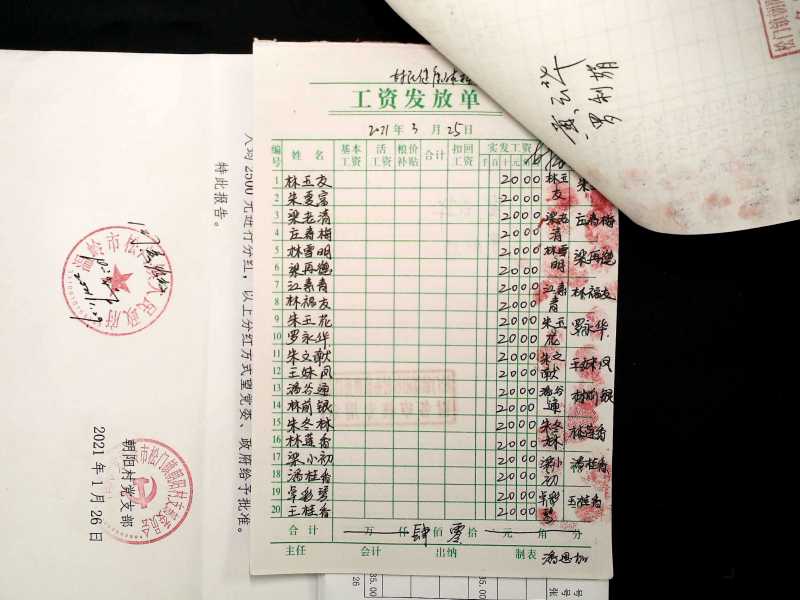 工资发放单
2021年3月25日
编号 姓名 基本工资 活工资 粮价补贴 合计 扣回工资 实发工资
千百十元
1 林玉友 2000 林玉友
2 朱雯富 2000 朱
3 梁老清 2000 梁老清
4 庄寿梅 2000 庄寿梅
5 林雪明 2000 林雪明
6 梁再德 2000 梁再德
7 江素青 2000 江素青
8 林福友 2000 林福友
9 朱玉花 2000 朱玉花
10 罗永华 2000 罗永华
11 朱文献 2000 朱文献
12 王妹凤 2000 王妹凤
13 潘谷通 2000 潘谷通
14 林前银 2000 林前银
15 朱冬林 2000 朱冬林
16 林莲香 2000 林莲香
17 梁小初 2000 梁小初
18 潘桂香 2000 潘桂香
19 卓彩琴 2000 卓彩琴
20 王桂香 2000 王桂香
合计 万仟肆佰零拾元角分
主任 会计 出纳 制表 潘恩加
2500元进行分红，以上分红方式望党委、政府给予批准。
特此报告。
朝阳村党支部
2021年1月26日
人民政府
35.00
35.00
26
号
号
张